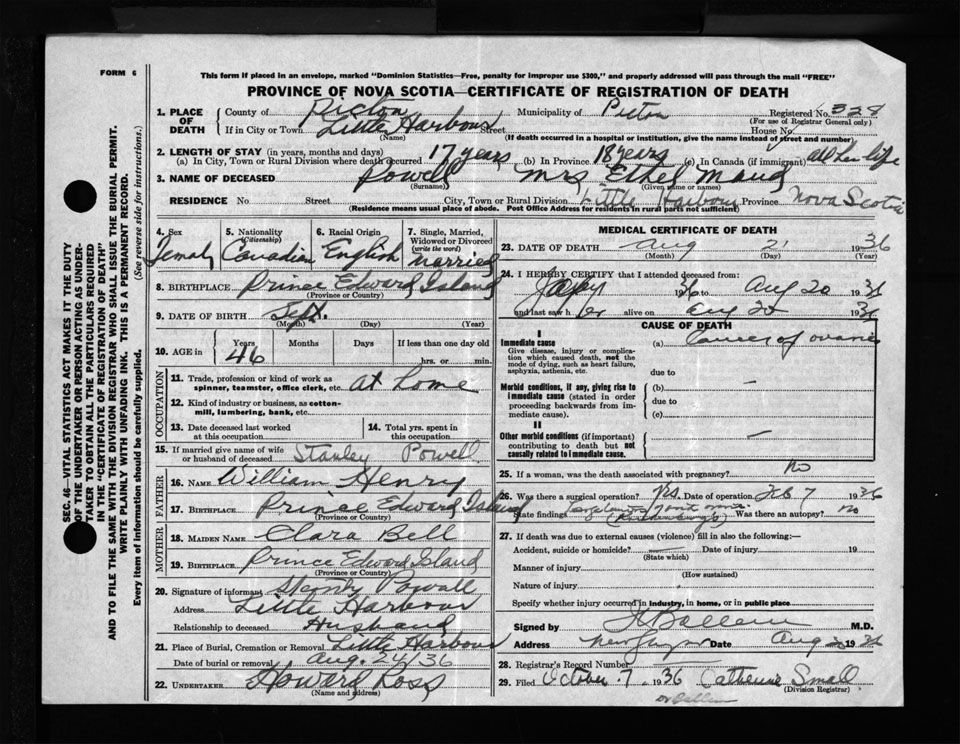 FORM 6
SEC. 46—VITAL STATISTICS ACT MAKES IT THE DUTY
OF THE UNDERTAKER OR PERSON ACTING AS UNDER-
TAKER TO OBTAIN ALL THE PARTICULARS REQUIRED
IN THE "CERTIFICATE OF REGISTRATION OF DEATH"
AND TO FILE THE SAME WITH THE DIVISION REGISTRAR WHO SHALL ISSUE THE BURIAL PERMIT.
WRITE PLAINLY WITH UNFADING INK. THIS IS A PERMANENT RECORD.
Every item of information should be carefully supplied. (See reverse side for instructions.)
This form if placed in an envelope, marked "Dominion Statistics—Free, penalty for improper use $300," and properly addressed will pass through the mail "FREE"
PROVINCE OF NOVA SCOTIA—CERTIFICATE OF REGISTRATION OF DEATH
1. PLACE OF DEATH County of Pictou Municipality of Pictou Registered No. 328
(For use of Registrar General only)
If in City or Town Little Harbour Street House No.
(Name) (If death occurred in a hospital or institution, give the name instead of street and number)
2. LENGTH OF STAY (in years, months and days)
(a) In City, Town or Rural Division where death occurred 17 years (b) In Province 18 years (c) In Canada (if immigrant) all her life
3. NAME OF DECEASED Powell Mrs Ethel Maud
(Surname) (Given name or names)
RESIDENCE No. Street City, Town or Rural Division Little Harbour Province Nova Scotia
(Residence means usual place of abode. Post Office Address for residents in rural parts not sufficient)
4. Sex Female
5. Nationality (Citizenship) Canadian
6. Racial Origin English
7. Single, Married, Widowed or Divorced (write the word) Married
8. BIRTHPLACE Prince Edward Island
(Province or Country)
9. DATE OF BIRTH Sept.
(Month) (Day) (Year)
10. AGE in Years 46 Months Days If less than one day old
hrs. or min.
OCCUPATION
11. Trade, profession or kind of work as spinner, teamster, office clerk, etc. at Home
12. Kind of industry or business, as cotton-mill, lumbering, bank, etc.
13. Date deceased last worked at this occupation
14. Total yrs. spent in this occupation
15. If married give name of wife or husband of deceased Stanley Powell
FATHER
16. NAME William Henry
17. BIRTHPLACE Prince Edward Island
(Province or Country)
MOTHER
18. MAIDEN NAME Clara Bell
19. BIRTHPLACE Prince Edward Island
(Province or Country)
20. Signature of informant Powell
Address Little Harbour
Relationship to deceased Husband
21. Place of Burial, Cremation or Removal Little Harbour
Date of burial or removal Aug. 24/36
22. UNDERTAKER Howard Ross
(Name and address)
MEDICAL CERTIFICATE OF DEATH
23. DATE OF DEATH Aug 21 1936
(Month) (Day) (Year)
24. I HEREBY CERTIFY that I attended deceased from:
36 to Aug 20 1936
and last saw her alive on Aug 20 1936
CAUSE OF DEATH
I
Immediate cause (a) Cancer of ovaries
Give disease, injury or complication which caused death, not the mode of dying, such as heart failure, asphyxia, asthenia, etc.
due to
Morbid conditions, if any, giving rise to immediate cause (stated in order proceeding backwards from immediate cause). (b) —
due to
(c)
II
Other morbid conditions (if important) contributing to death but not causally related to immediate cause. —
25. If a woman, was the death associated with pregnancy? No
26. Was there a surgical operation? Yes. Date of operation Feb 7 1936
State findings Was there an autopsy? No
27. If death was due to external causes (violence) fill in also the following:—
Accident, suicide or homicide? Date of injury 19
(State which)
Manner of injury
(How sustained)
Nature of injury
Specify whether injury occurred in industry, in home, or in public place
Signed by Ballem M.D.
Address Date Aug 1936
28. Registrar's Record Number
29. Filed October 7, 1936 Catherine Small
(Division Registrar)
Dr Ballem